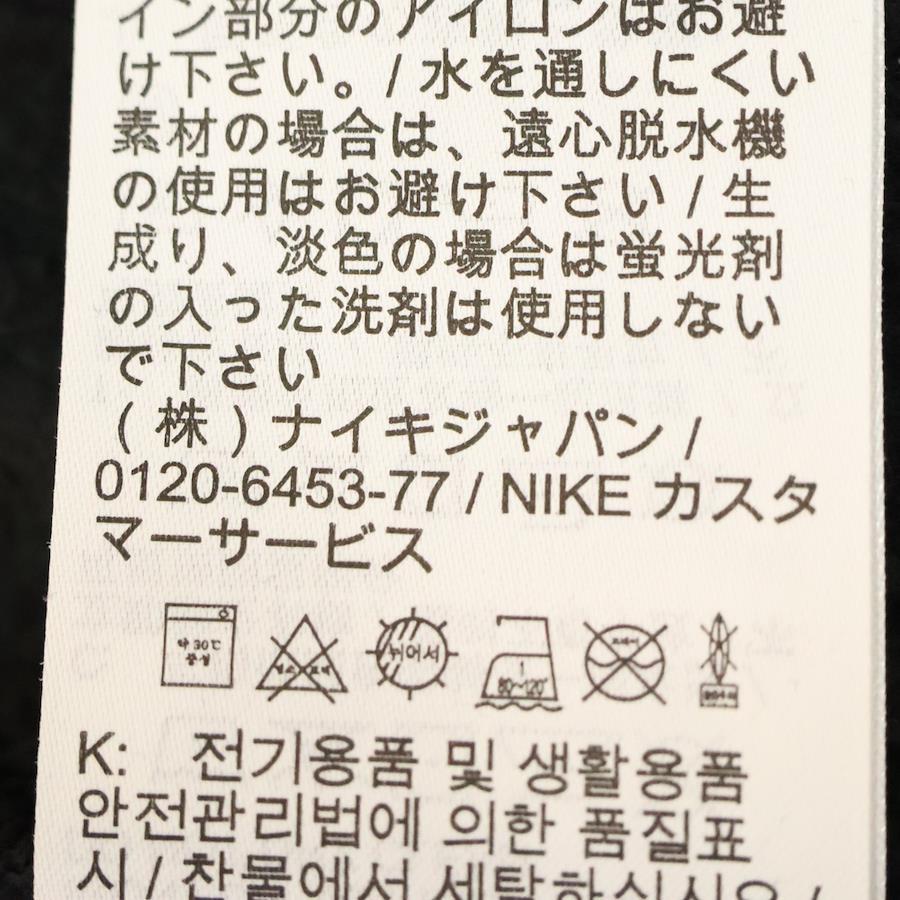 イン部分のアイロンはお避
け下さい。/ 水を通しにくい
素材の場合は、遠心脱水機
の使用はお避け下さい / 生
成り、淡色の場合は蛍光剤
の入った洗剤は使用しない
で下さい
(株)ナイキジャパン /
0120-6453-77 / NIKE カスタ
マーサービス
약 30℃ 중성
뉘어서
80~120℃
K: 전기용품 및 생활용품
안전관리법에 의한 품질표
시 / 찬물에서 세탁하십시오 /